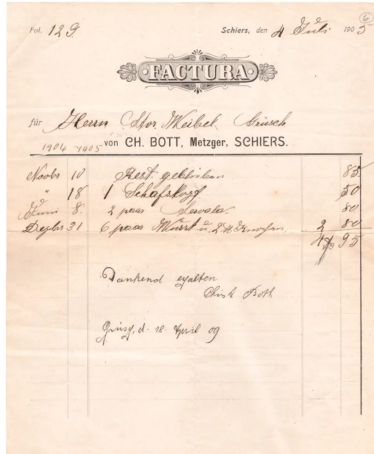 Fol. 129.
Schiers, den 4 Juli 1905
FACTURA
für Herrn Weibel, Grüsch
1904 1905 von CH. BOTT, Metzger, SCHIERS.
Novbr 10 Rest geblieben 85
" 18 1 Schafskopf 50
Juni 8. 2 paar Servela. 80
31 6 paar Würst u. 2 80
4 95
Dankend erhalten
Christ Bott
d. April 09